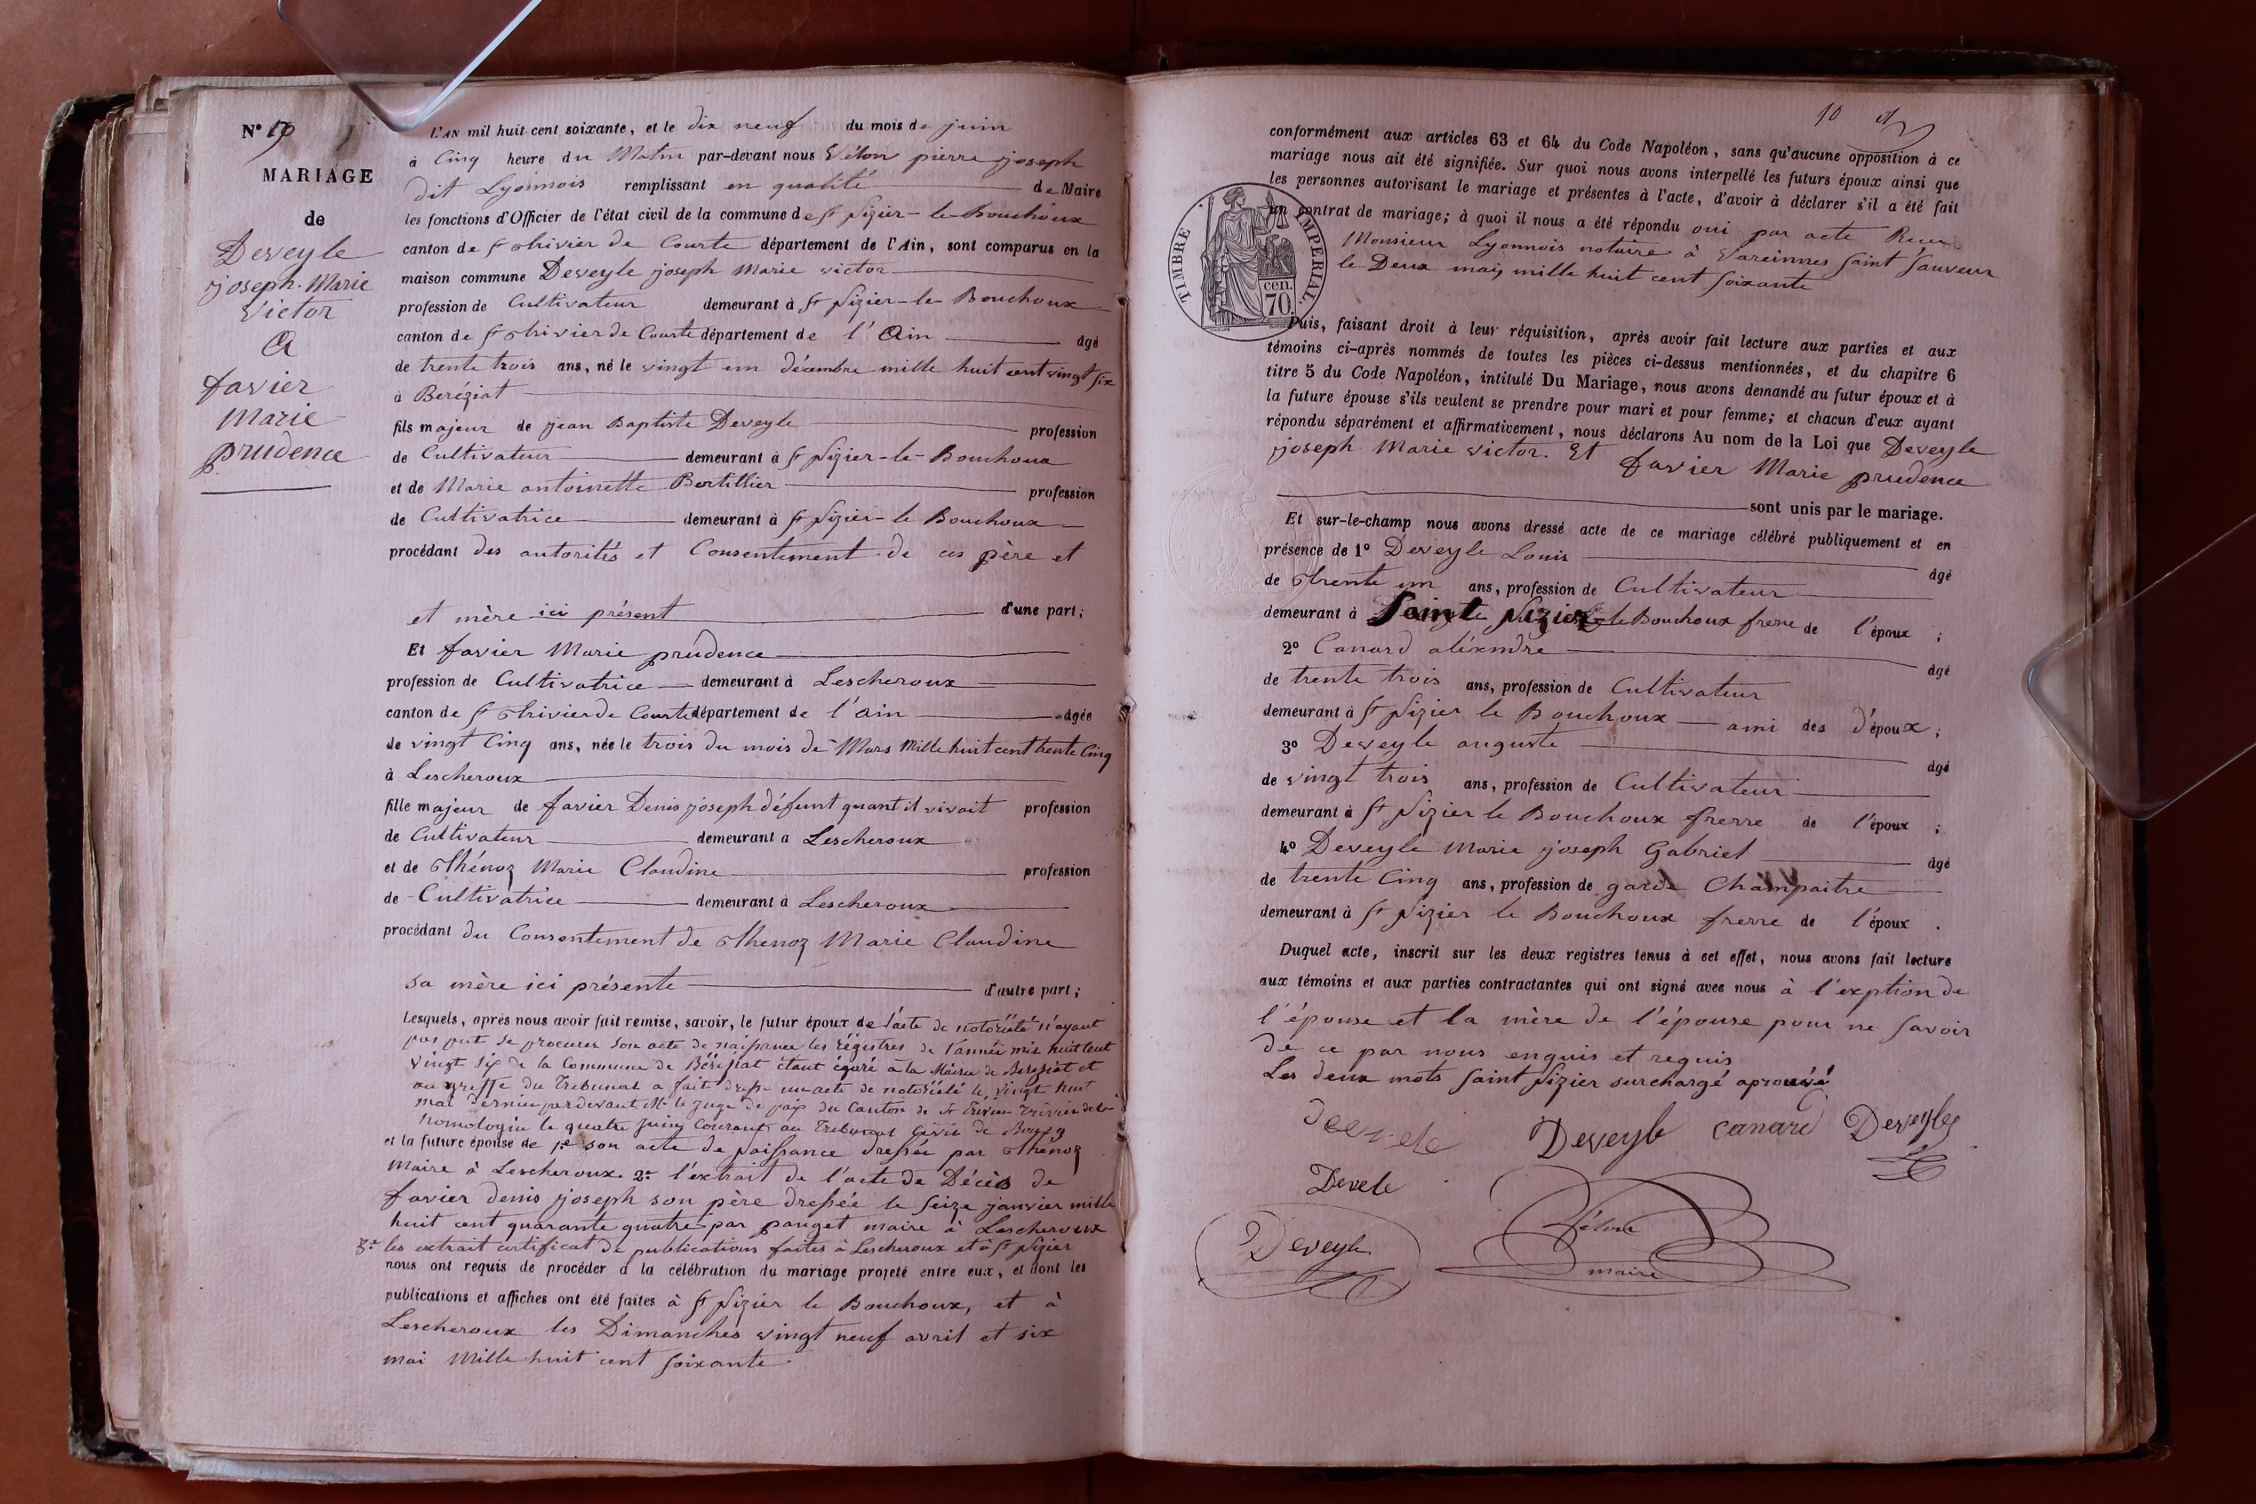 N° 10
MARIAGE
de
Deveyle
joseph. Marie
Victor
a
favier
Marie
prudence
L'AN mil huit cent soixante, et le dix neuf du mois de juin
à Cinq heure du Matin par-devant nous Vélon pierre joseph
dit Lyonnois remplissant en qualité de Maire
les fonctions d'Officier de l'état civil de la commune de St Nizier-le-Bouchoux
canton de St Trivier de Courte département de l'Ain, sont comparus en la
maison commune Deveyle joseph Marie victor
profession de Cultivateur demeurant à St Nizier-le-Bouchoux
canton de St Trivier de Courte département de l'Ain âgé
de trente trois ans, né le vingt un décembre mille huit cent vingt six
à Beréziat
fils majeur de jean Baptiste Deveyle profession
de Cultivateur demeurant à St Nizier-le-Bouchoux
et de Marie antoinette Bertillier profession
de Cultivatrice demeurant à St Nizier-le Bouchoux
procédant des autorités et Consentement de ces père et
et mère ici présent d'une part;
Et favier Marie prudence
profession de Cultivatrice demeurant à Lescheroux
canton de St Trivier de Courte département de l'ain âgée
de vingt Cinq ans, née le trois du mois de Mars Mille huit cent trente Cinq
à Lescheroux
fille majeur de favier Denis joseph défunt quant il vivait profession
de Cultivateur demeurant a Lescheroux
et de Thénoz Marie Claudine profession
de Cultivatrice demeurant à Lescheroux
procédant du Consentement de Thenoz Marie Claudine
sa mère ici présente d'autre part;
Lesquels, après nous avoir fait remise, savoir, le futur époux de l'acte de notoriété n'ayant
pas put se procurer son acte de naissance les régistres de l'année mil huit cent
vingt six de la Commune de Béréziat étant égaré à la Mairie de Bereziat et
au greffe du Tribunal a fait dresse un acte de notoriété le vingt huit
mai dernier pardevant Mr le juge de paix du Canton de St Trivier
homologin le quatre juin Courant au Tribunal Civil de Bourg
et la future épouse de 1° son acte de naissance dressée par Thénoz
Maire à Lescheroux. 2° l'extrait de l'acte de Décès de
favier denis joseph son père dressée le seize janvier mille
huit cent quarante quatre par pauget maire à Lescheroux
3° les extrait certificat de publications faites à Lescheroux et à St Nizier
nous ont requis de procéder à la célébration du mariage projeté entre eux, et dont les
publications et affiches ont été faites à St Nizier le Bouchoux, et à
Lescheroux les Dimanches vingt neuf avril et six
mai Mille huit cent soixante.
10
conformément aux articles 63 et 64 du Code Napoléon, sans qu'aucune opposition à ce
mariage nous ait été signifiée. Sur quoi nous avons interpellé les futurs époux ainsi que
les personnes autorisant le mariage et présentes à l'acte, d'avoir à déclarer s'il a été fait
un contrat de mariage; à quoi il nous a été répondu oui par acte Recu
Monsieur Lyonnois notaire à Vareinnes saint sauveur
le Deux mai mille huit cent soixante
TIMBRE IMPERIAL.
cen.
70.
Puis, faisant droit à leur réquisition, après avoir fait lecture aux parties et aux
témoins ci-après nommés de toutes les pièces ci-dessus mentionnées, et du chapitre 6
titre 5 du Code Napoléon, intitulé Du Mariage, nous avons demandé au futur époux et à
la future épouse s'ils veulent se prendre pour mari et pour femme; et chacun d'eux ayant
répondu séparément et affirmativement, nous déclarons Au nom de la Loi que Deveyle
joseph Marie victor. Et favier Marie prudence
sont unis par le mariage.
Et sur-le-champ nous avons dressé acte de ce mariage célébré publiquement et en
présence de 1° Deveyle Louis âgé
de trente un ans, profession de Cultivateur
demeurant à Saint Nizier le Bouchoux frere de l'époux ;
2° Canard aléxndre âgé
de trente trois ans, profession de Cultivateur
demeurant à St Nizier le Bouchoux ami des d'époux ;
3° Deveyle auguste âgé
de vingt trois ans, profession de Cultivateur
demeurant à St Nizier le Bouchoux frerre de l'époux ;
4° Deveyle Marie joseph Gabriel âgé
de trente Cinq ans, profession de garde Champaitre
demeurant à St Nizier le Bouchoux frerre de l'époux .
Duquel acte, inscrit sur les deux registres tenus à cet effet, nous avons fait lecture
aux témoins et aux parties contractantes qui ont signé avec nous à l'exption de
l'épouse et la mère de l'épouse pour ne savoir
de ce par nous enquis et requis
Les deux mots saint Nizier surchargé aprouvé
Deveyle canard Deveyle
Devele
Deveyle
Vélon
maire